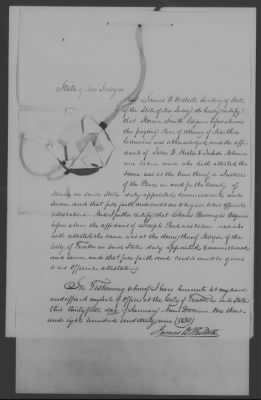 State of New Jersey ss
I James D. Westcott Secretary of State
of the State of New Jersey do hereby certify
that Horace Smith Esquire before whom
the foregoing Power of Attorney of
was acknowledged, and the affi-
davit of John
was taken and who hath attested the
same was at the time thereof a Justice
of the Peace in and for the County of
Mercer in said State duly appointed commissioned and
sworn and that full faith and credit are to be given to his official
attestations. And I further certify that Charles Burroughs Esquire
before whom the affidavit of Joseph was taken and who
hath attested the same was at the time thereof Mayor of the
City of Trenton in said State duly appointed commissioned
and sworn and that full faith and credit are to be given
to his official attestation.
In Testimony whereof I have hereunto set my hand
and official seal of office at the City of Trenton in said State
this thirty first day of January Anno Domini One thous-
and eight hundred and thirty nine (1839)
James D. Westcott